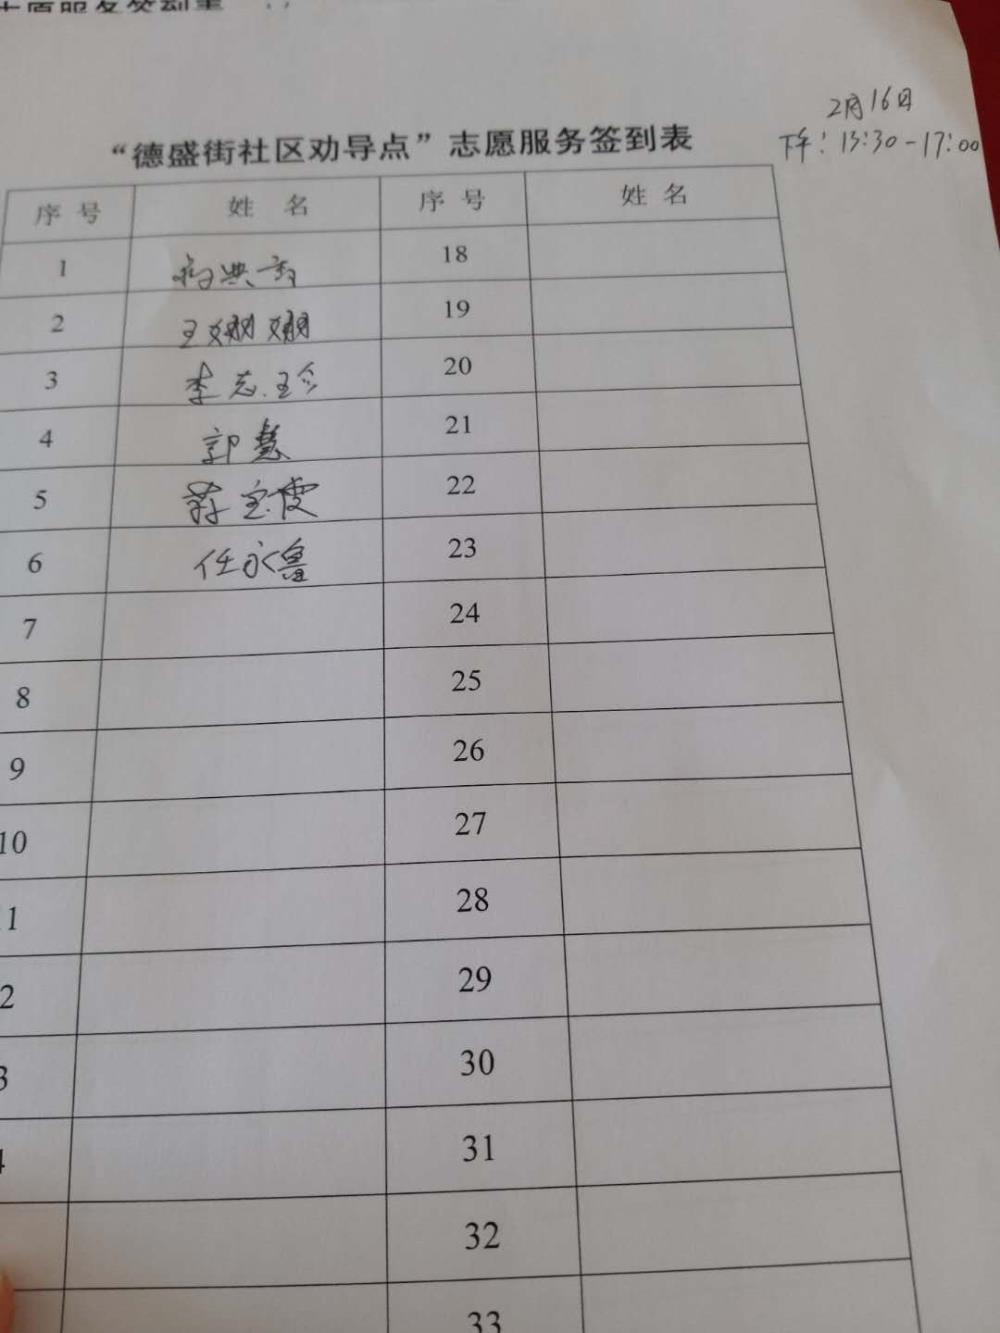 志愿服务签到表
2月16日
下午：13:30-17:00
“德盛街社区劝导点”志愿服务签到表
序号 姓名 序号 姓名
1 18
2 王姗姗 19
3 李志玲 20
4 郭慧 21
5 蒋宝霞 22
6 任永鲁 23
7 24
8 25
9 26
10 27
11 28
2 29
3 30
4 31
32
33